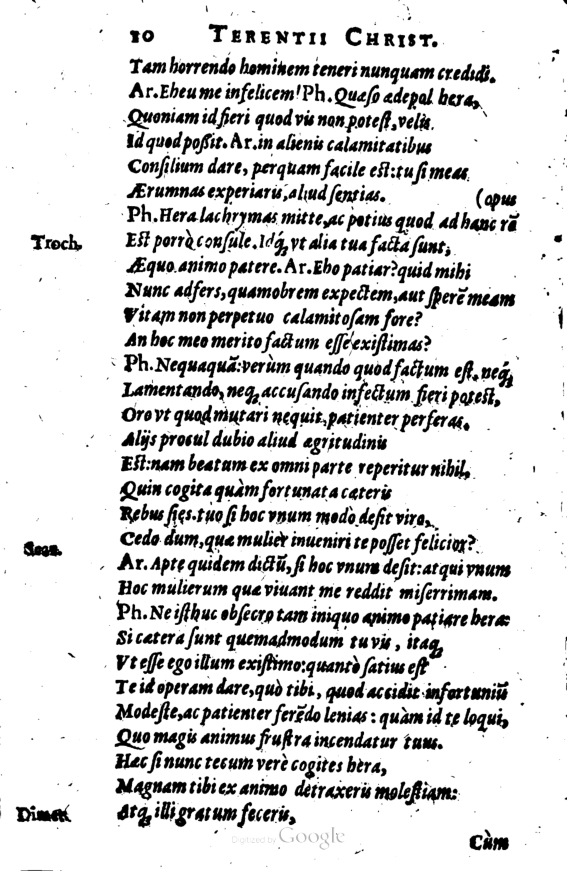 10 TERENTII CHRIST.
Tam horrendo hominem teneri nunquam credidi.
Ar. Eheu me infelicem! Ph. Quæso ædepol hera,
Quoniam id fieri quod vis non potest, velis
Id quod poßit. Ar. in alienis calamitatibus
Consilium dare, perquam facile est: tu si meas
Ærumnas experiaris, aliud sentias. (opus
Ph. Hera lachrymas mitte, ac potius quod ad hanc rē
Troch. Est porrò consule. Idq́, vt alia tua facta sunt,
Æquo animo patere. Ar. Eho patiar? quid mihi
Nunc adfers, quamobrem expectem, aut sperē meam
Vitam non perpetuo calamitosam fore?
An hoc meo merito factum esse existimas?
Ph. Nequaquã: verùm quando quod factum est, neq́,
Lamentando, neq, accusando infectum fieri potest,
Oro vt quod mutari nequit, patienter perferas.
Alijs procul dubio aliud ægritudinis
Est: nam beatum ex omni parte reperitur nihil,
Quin cogita quàm fortunata cæteris
Rebus sies. tuo si hoc vnum modò desit viro,
Cedo dum, quæ mulier inueniri te posset felicior?
Ar. Aptè quidem dictũ, si hoc vnum desit: atqui vnum
Hoc mulierum quæ viuant me reddit miserrimam.
Ph. Ne isthuc obsecro tam iniquo animo patiare hera:
Si cætera sunt quemadmodum tu vis, itaq,
Vt esse ego illum existimo: quantò satius est
Te id operam dare, quò tibi, quod accidit infortuniũ
Modestè, ac patienter ferēdo lenias: quàm id te loqui,
Quo magis animus frustra incendatur tuus.
Hæc si nunc tecum verè cogites hera,
Magnam tibi ex animo detraxeris molestiam:
Dimet. Atq, illi gratum feceris,
Digitized by Google
Cùm